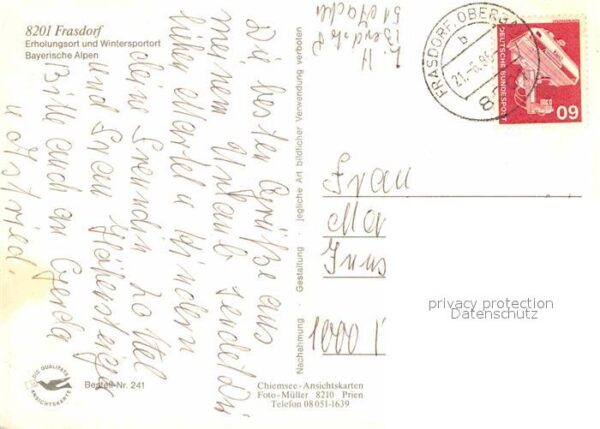 8201 Frasdorf
Erholungsort und Wintersportort
Bayerische Alpen
Die besten Grüße aus
meinem Urlaub sendet Dir
liebe u Kindern
deine Freundin
und Frau
Bitte auch an Gerda
u Astried.
DIE QUALITÄTS
ANSICHTSKARTE
Bestell-Nr. 241
Nachahmung · Gestaltung · jegliche Art bildlicher Verwendung verboten
Chiemsee-Ansichtskarten
Foto-Müller 8210 Prien
Telefon 08051-1639
FRASDORF, OBERB
b
21.-6.85
8
DEUTSCHE BUNDESPOST
60
Frau
1000 1
privacy protection
Datenschutz